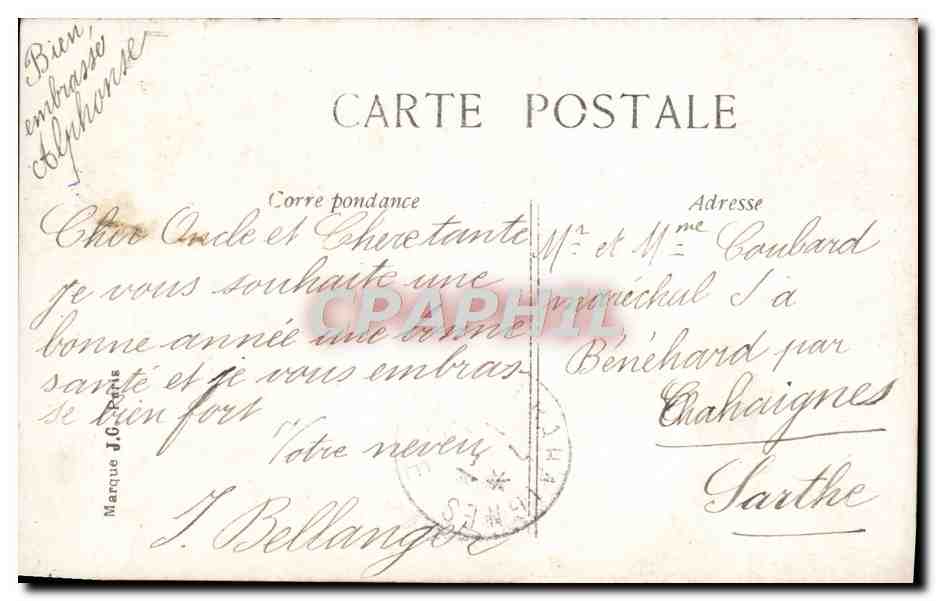 Bien,
embrasse
Alphonse
CARTE POSTALE
Corre pondance
Adresse
Cher Oncle et Chere tante
je vous souhaite une
bonne année une bonne
santé et je vous embras-
se bien fort
Votre neveu
J. Bellanger
Mr et Mme Coubard
maréchal J a
Bénéhard par
Chahaignes
Sarthe
Marque J.G. Paris
CPAPHIL